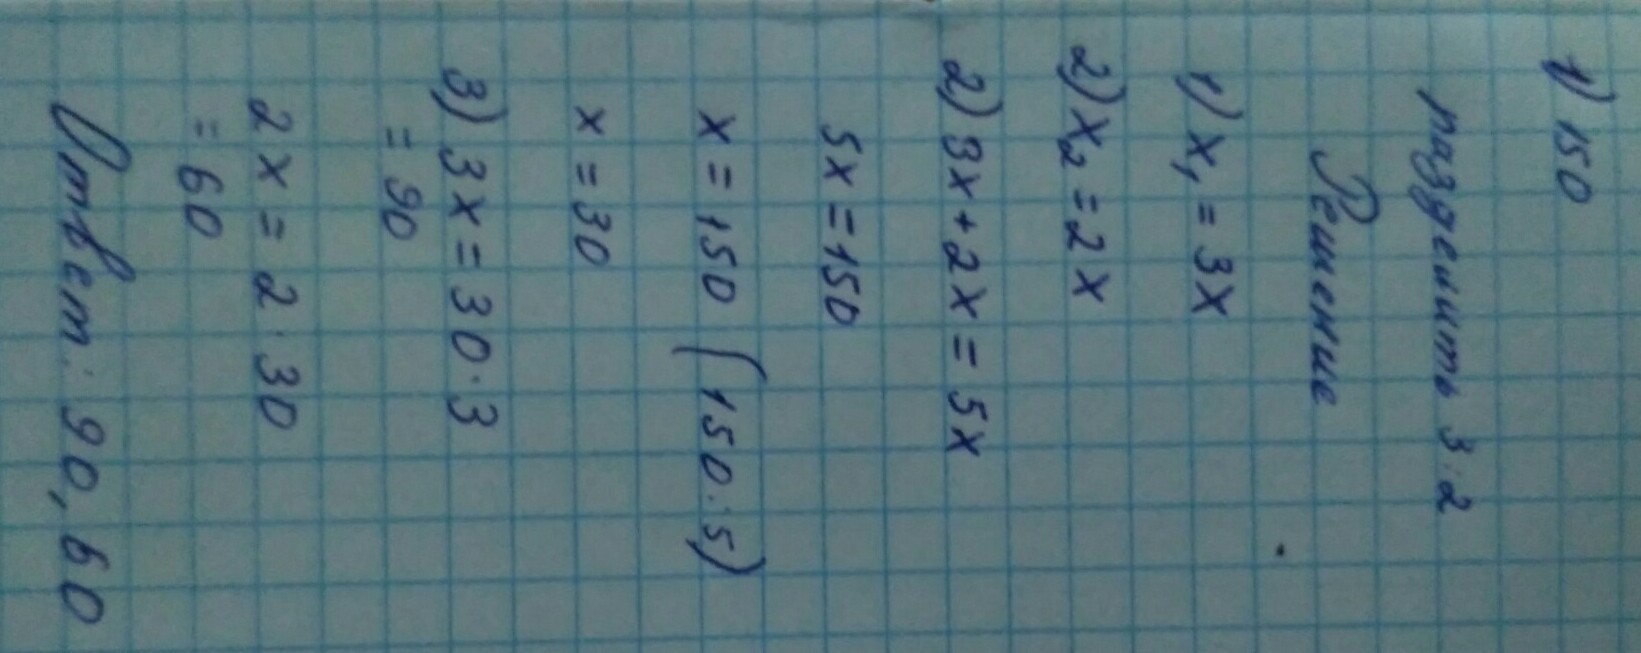 1) 150
разделить 3:2
Решение
1) x₁ = 3x
2) x₂ = 2x
2) 3x + 2x = 5x
5x = 150
x = 150 (150:5)
x = 30
3) 3x = 30·3
= 90
2x = 2·30
= 60
Ответ: 90, 60